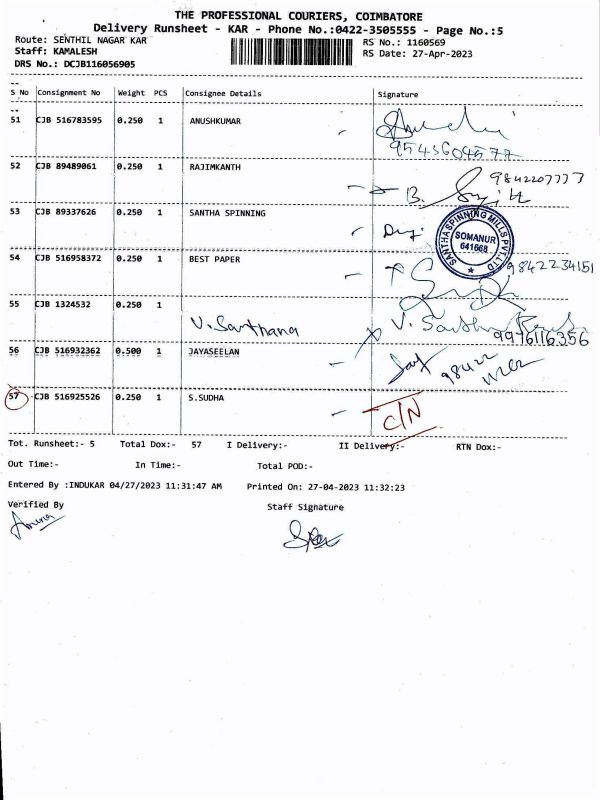 THE PROFESSIONAL COURIERS, COIMBATORE
Delivery Runsheet - KAR - Phone No.:0422-3505555 - Page No.:5
Route: SENTHIL NAGAR KAR
RS No.: 1160569
Staff: KAMALESH
RS Date: 27-Apr-2023
DRS No.: DCJB116056905
S No Consignment No Weight PCS Consignee Details Signature
51 CJB 516783595 0.250 1 ANUSHKUMAR
9543604577
52 CJB 89489061 0.250 1 RAJIMKANTH
9842207773
53 CJB 89337626 0.250 1 SANTHA SPINNING
SANTHA SPINNING MILLS PVT.LTD
SOMANUR
641668
54 CJB 516958372 0.250 1 BEST PAPER
9842234151
55 CJB 1324532 0.250 1
V. Santhana
9976116356
56 CJB 516932362 0.500 1 JAYASEELAN
57 CJB 516925526 0.250 1 S.SUDHA
C/N
Tot. Runsheet:- 5 Total Dox:- 57 I Delivery:- II Delivery:- RTN Dox:-
Out Time:- In Time:- Total POD:-
Entered By :INDUKAR 04/27/2023 11:31:47 AM Printed On: 27-04-2023 11:32:23
Verified By
Staff Signature